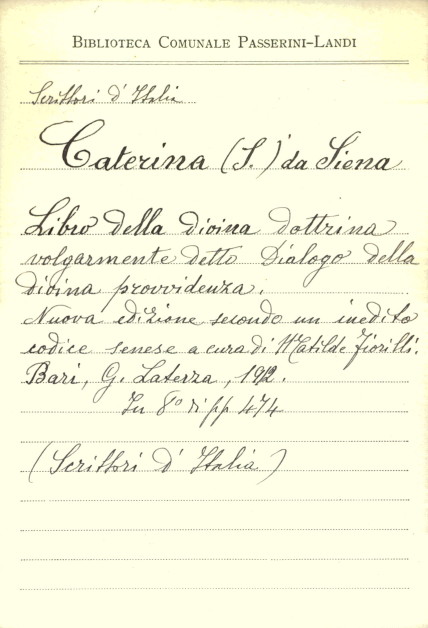 BIBLIOTECA COMUNALE PASSERINI-LANDI
Scrittori d'Italia
Caterina (S.) da Siena
Libro della divina dottrina
volgarmente detto Dialogo della
divina provvidenza.
Nuova edizione secondo un inedito
codice senese a cura di Matilde Fiorilli.
Bari, G. Laterza, 1912.
In 8° di pp 474
(Scrittori d'Italia)